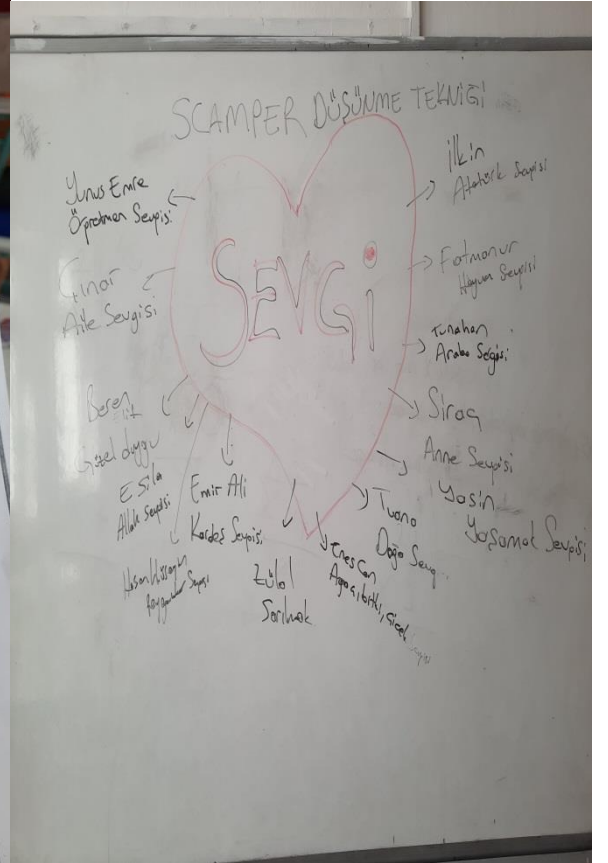 SCAMPER DÜŞÜNME TEKNİĞİ
SEVGİ
Yunus Emre
Öğretmen Sevgisi
Çınar
Aile Sevgisi
Beren
güzel duygu
Esila
Allah Sevgisi
Hasan Hüseyin
Peygamber Sevgisi
Emir Ali
Kardeş Sevgisi
Zülal
Sarılmak
Enes Can
Ağaç, bitki, çiçek
Tuana
Doğa Sevg
Yasin
Yaşamak Sevgisi
Siraç
Anne Sevgisi
Tunahan
Araba Sevgisi
Fatmanur
Hayvan Sevgisi
İlkin
Atatürk Sevgisi